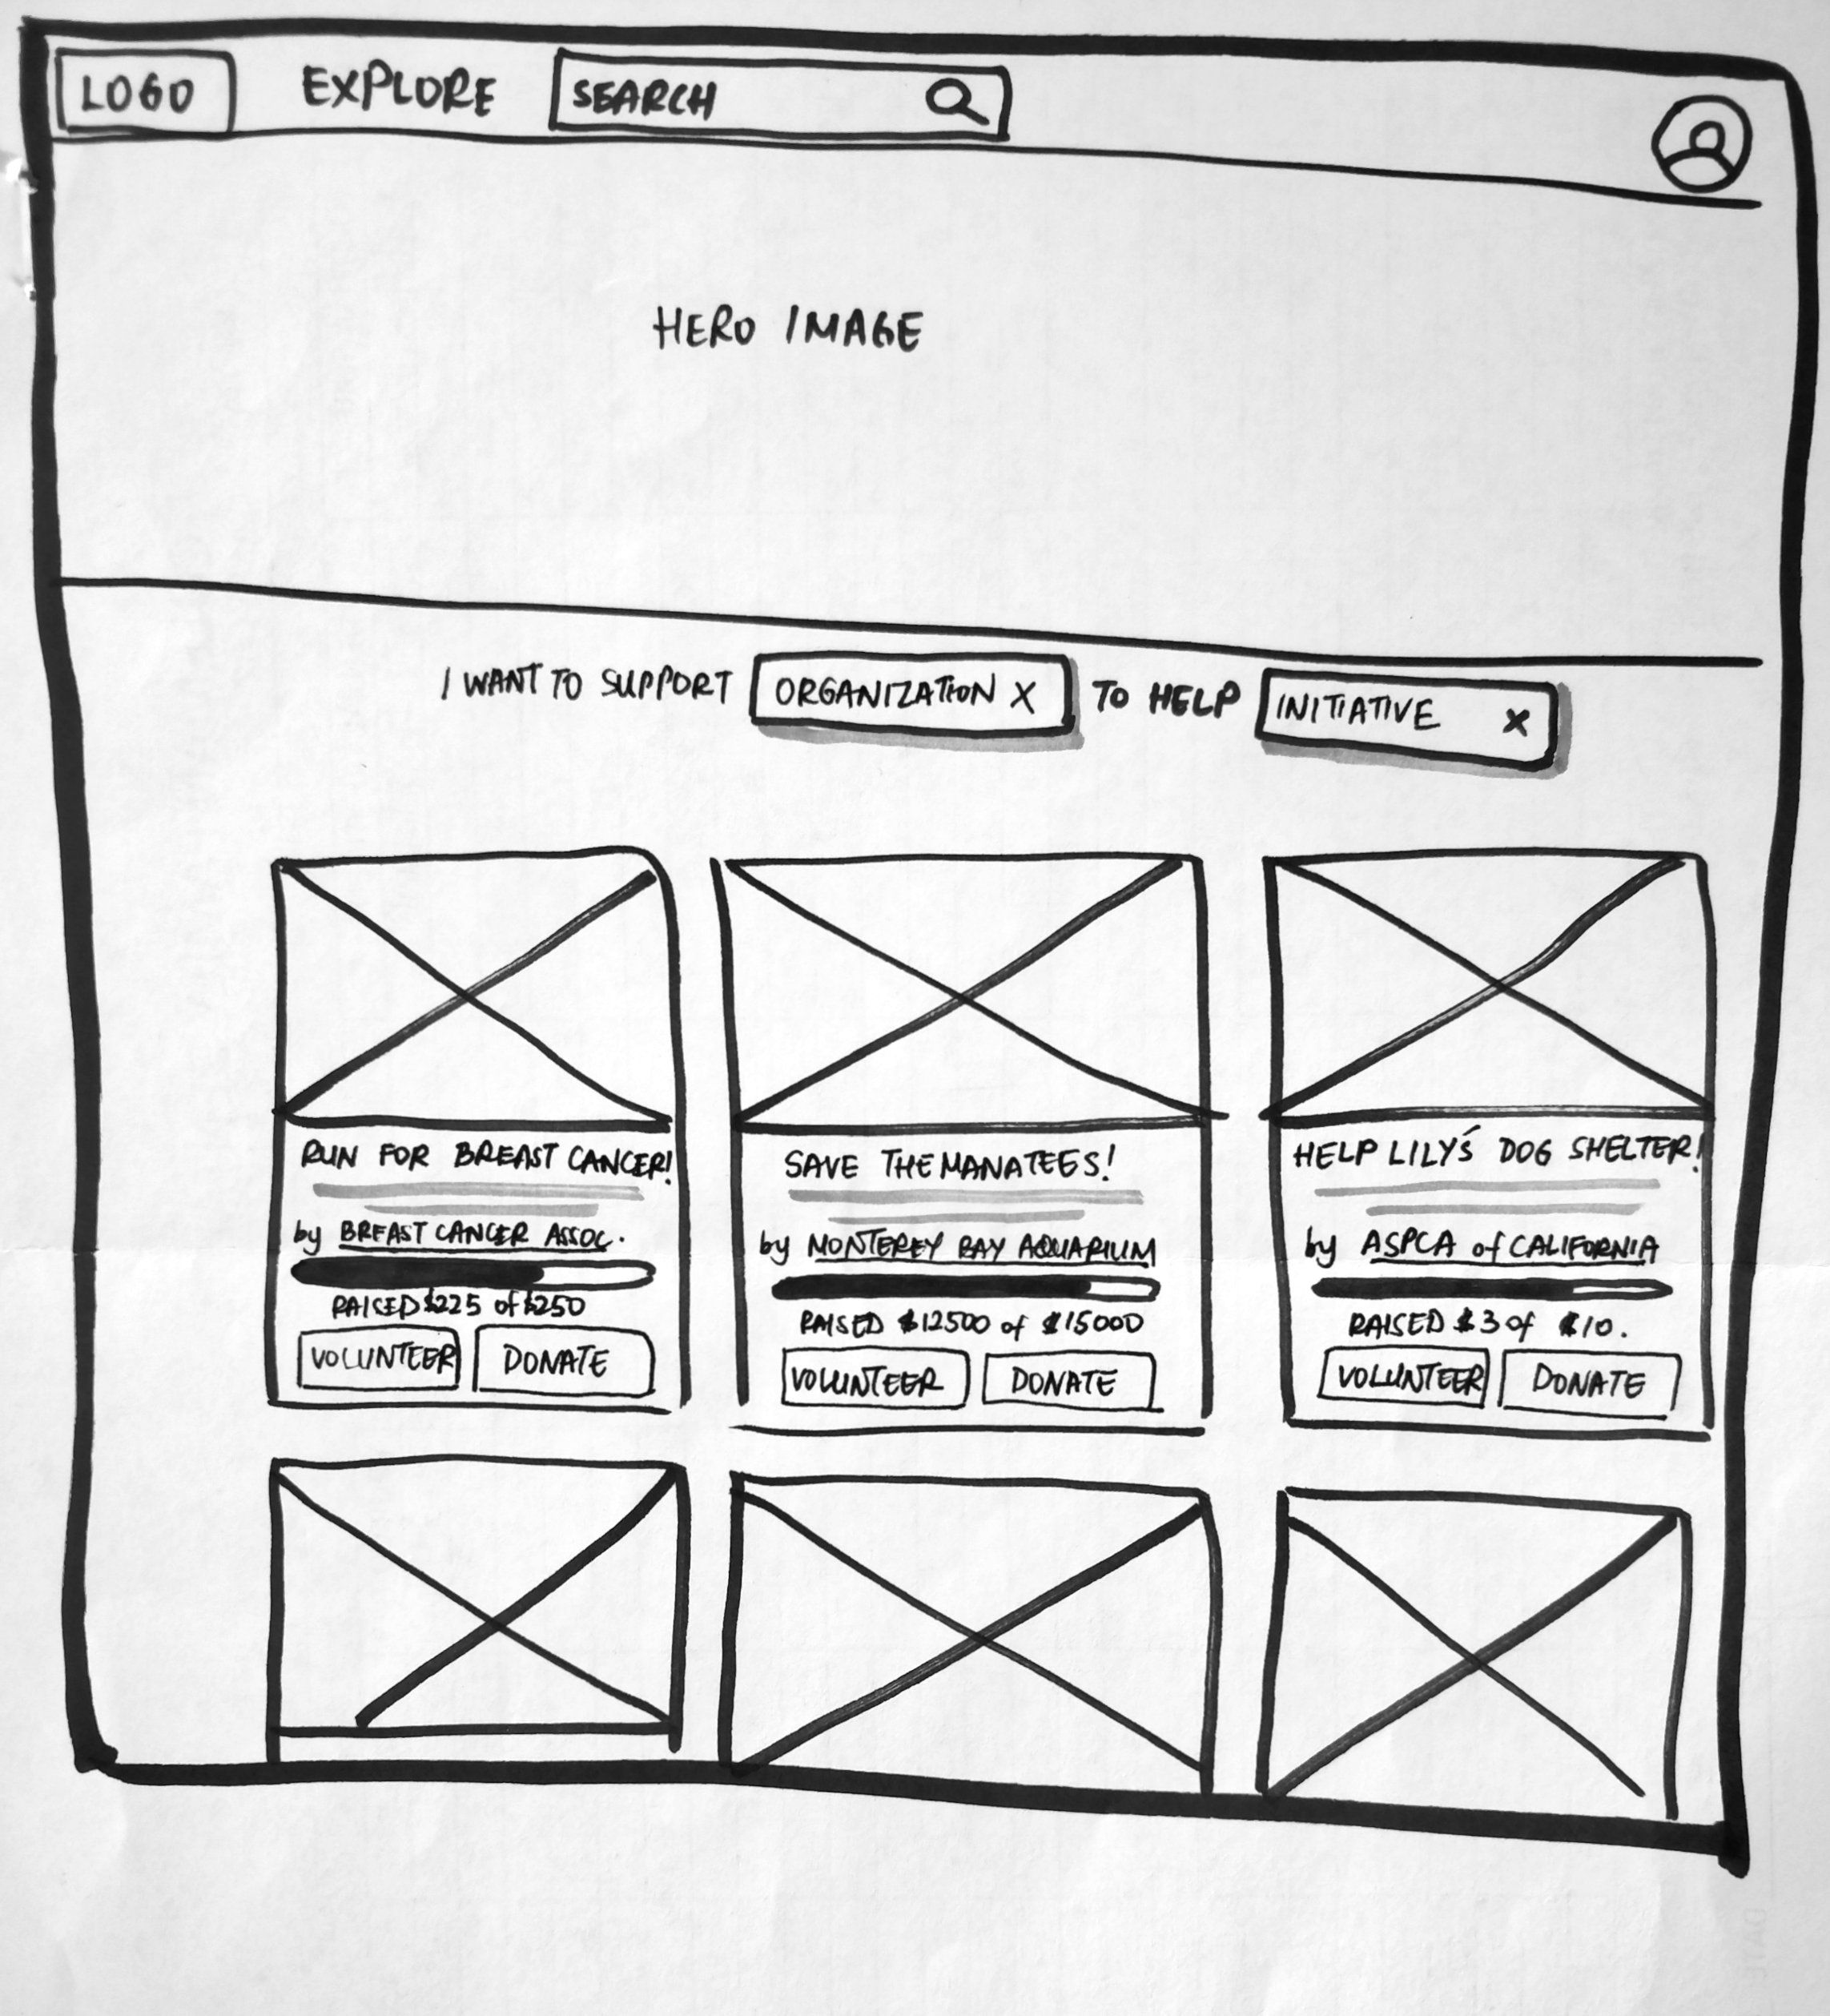 LOGO EXPLORE SEARCH
HERO IMAGE
I WANT TO SUPPORT ORGANIZATION X TO HELP INITIATIVE X
RUN FOR BREAST CANCER!
by BREAST CANCER ASSOC.
RAISED $225 of $250
VOLUNTEER DONATE
SAVE THE MANATEES!
by MONTEREY BAY AQUARIUM
RAISED $12500 of $15000
VOLUNTEER DONATE
HELP LILY'S DOG SHELTER!
by ASPCA of CALIFORNIA
RAISED $3 of $10.
VOLUNTEER DONATE